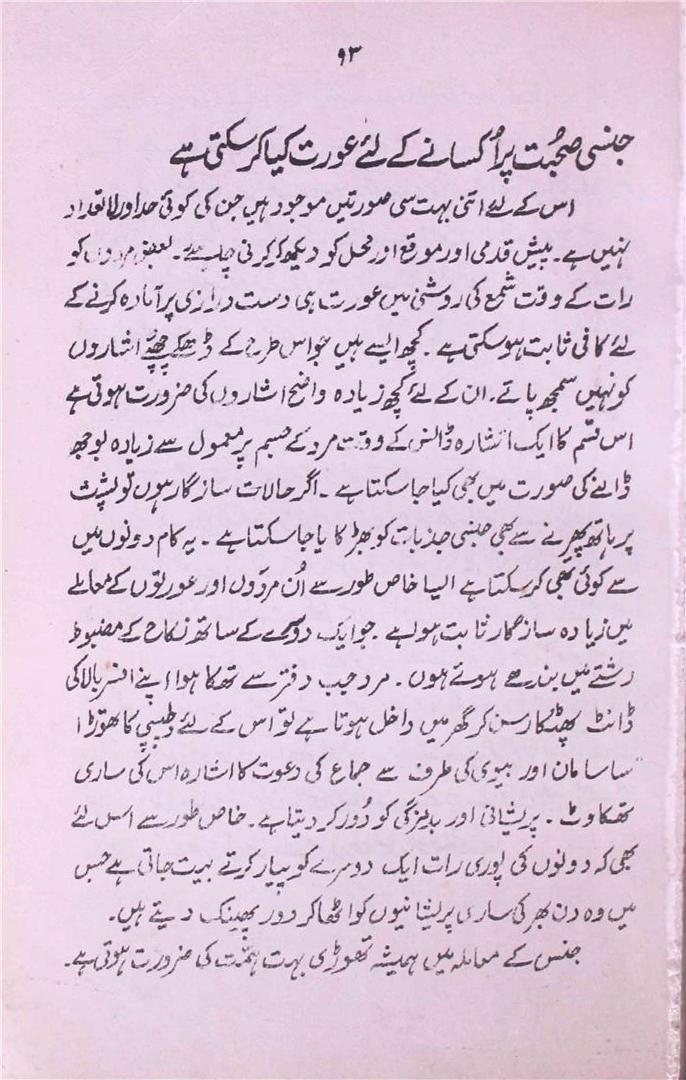 ۹۳
جنسی صحبت پر اُکسانے کے لئے عورت کیا کر سکتی ہے
اس کے لئے اتنی بہت سی صورتیں موجود ہیں جن کی کوئی حد اور لا تعداد
نہیں ہے۔ پیش قدمی اور موقع اور محل کو دیکھ کر کرنی چاہیے۔ بعض مردوں کو
رات کے وقت شمع کی روشنی میں عورت ہی دست درازی پر آمادہ کرنے کے
لئے کافی ثابت ہو سکتی ہے۔ کچھ ایسے ہیں جو اس طرح کے ڈھکے چھپے اشاروں
کو نہیں سمجھ پاتے۔ ان کے لئے کچھ زیادہ واضح اشاروں کی ضرورت ہوتی ہے
اس قسم کا ایک اشارہ ڈانس کے وقت مرد کے جسم پر معمول سے زیادہ بوجھ
ڈالنے کی صورت میں بھی کیا جا سکتا ہے۔ اگر حالات سازگار ہوں تو پشت
پر ہاتھ پھیرنے سے بھی جنسی جذبات کو بھڑکایا جا سکتا ہے۔ یہ کام دونوں میں
سے کوئی بھی کر سکتا ہے ایسا خاص طور سے اُن مردوں اور عورتوں کے معاملے
میں زیادہ سازگار ثابت ہوا ہے۔ جو ایک دوسرے کے ساتھ نکاح کے مضبوط
رشتے میں بندھے ہوئے ہوں۔ مرد جب دفتر سے تھکا ہوا اپنے افسر بالا کی
ڈانٹ پھٹکار سن کر گھر میں داخل ہوتا ہے تو اس کے لئے دلچسپی کا تھوڑا
سا سامان اور بیوی کی طرف سے جماع کی دعوت کا اشارہ اس کی ساری
تھکاوٹ۔ پریشانی اور بدمزگی کو دُور کر دیتا ہے۔ خاص طور سے اس لئے
بھی کہ دونوں کی پوری رات ایک دوسرے کو پیار کرتے بیت جاتی ہے جس
میں وہ دن بھر کی ساری پریشانیوں کو اٹھا کر دور پھینک دیتے ہیں۔
جنس کے معاملہ میں ہمیشہ تھوڑی بہت ہمّت کی ضرورت ہوتی ہے۔